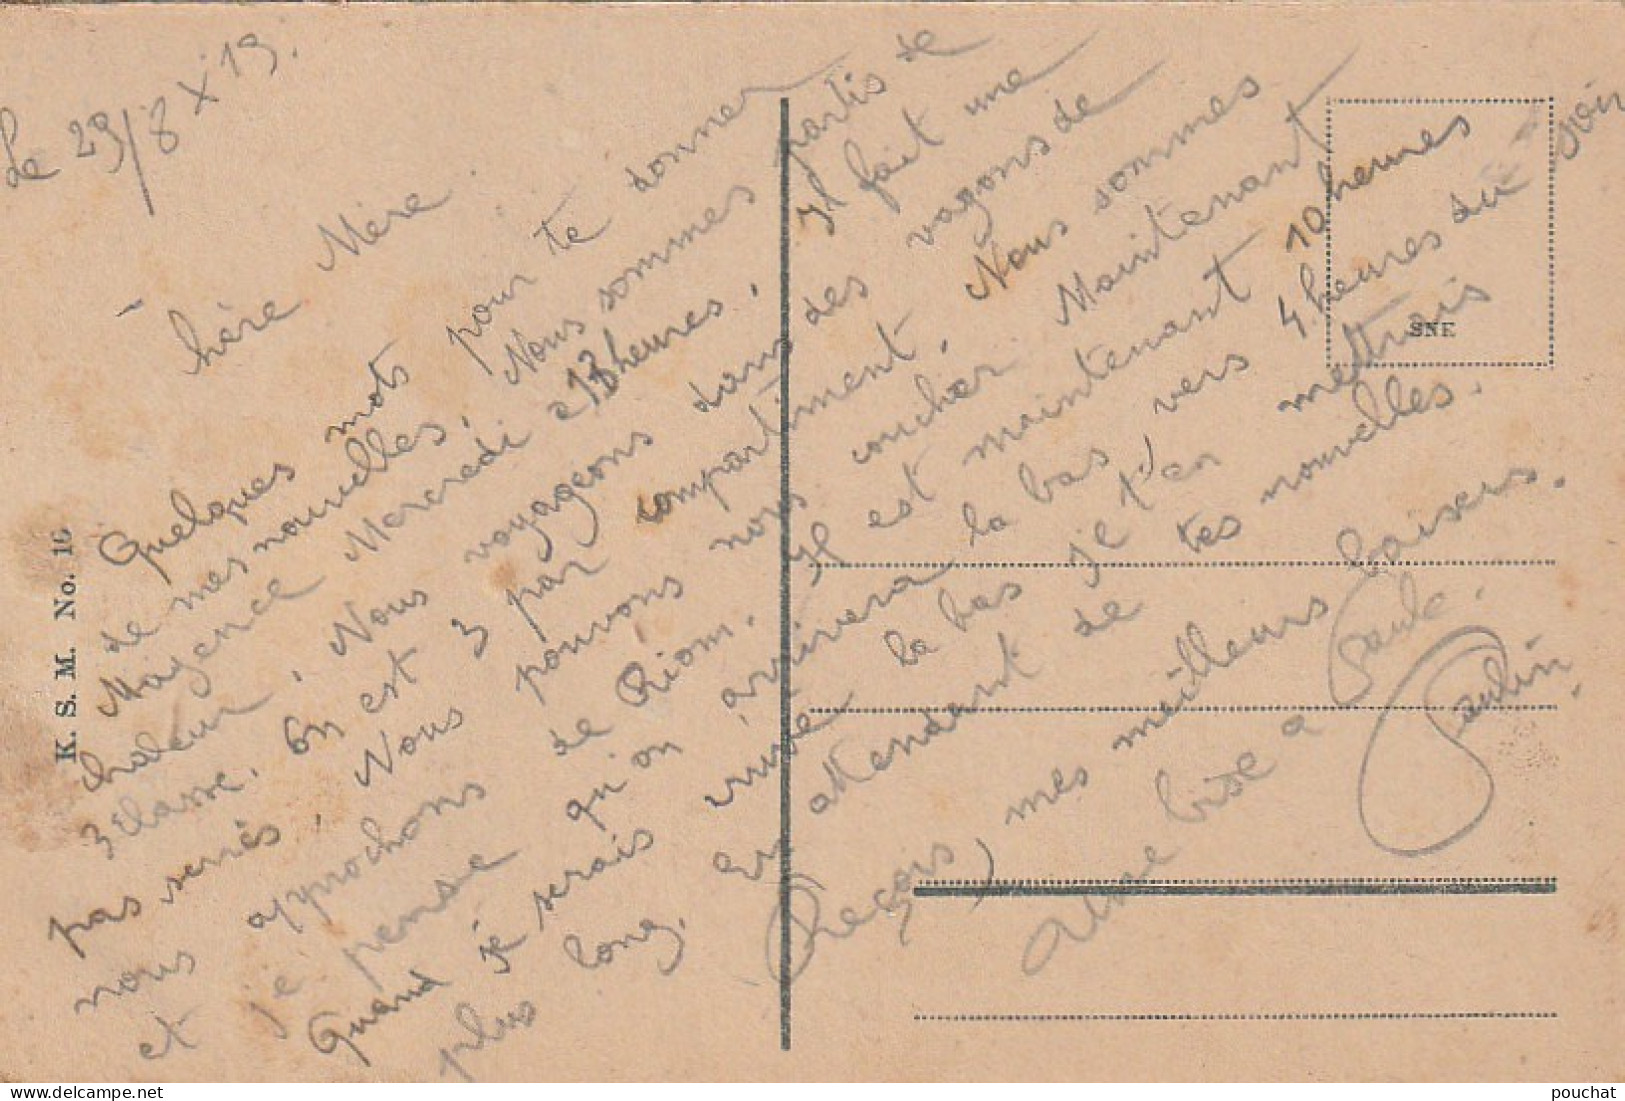 Le 29/8 X 19.
Chère Mère.
Quelques mots pour te donner
de mes nouvelles. Nous sommes partis de
Mayence Mercredi a 13 heures. Il fait une
chaleur. Nous voyageons dans des vagons de
3 classe. On est 3 par compartiment. Nous sommes
pas serrés. Nous pouvons nous coucher Maintenant
nous approchons de Riom. Il est maintenant 10 heures
et je pense qu'on arrivera la bas vers 4 heures du soir
Quand je serais arrivé la bas je t'en mettrais
plus long. En attendant de tes nouvelles.
Reçois, mes meilleurs baisers.
Une bise a Paule.
Paulin.
K. S. M. No. 16
SNE
pouchat